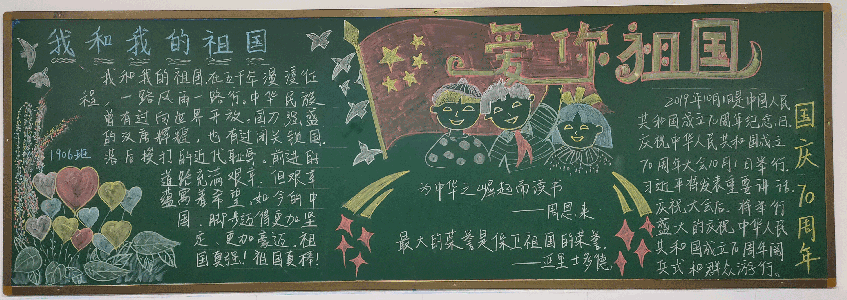 我和我的祖国
我和我的祖国,在五千年漫漫征
程,一路风雨一路行。中华民族
曾有过向世界开放、国力强盛
的汉唐辉煌,也有过闭关锁国、
落后挨打的近代耻辱。前进的
道路充满艰辛,但艰辛
蕴寓着希望,如今的中
国,脚步迈得更加坚
定、更加豪迈。祖
国真强!祖国真棒!
1906班
爱你祖国
为中华之崛起而读书
——周恩来
最大的荣誉是保卫祖国的荣誉。
——亚里士多德
2019年10月1日是中国人民
共和国成立70周年纪念日,
庆祝中华人民共和国成立
70周年大会10月1日举行,
习近平将发表重要讲话,
庆祝大会后,将举行
盛大的庆祝中华人民
共和国成立70周年阅
兵式和群众游行。
国庆70周年